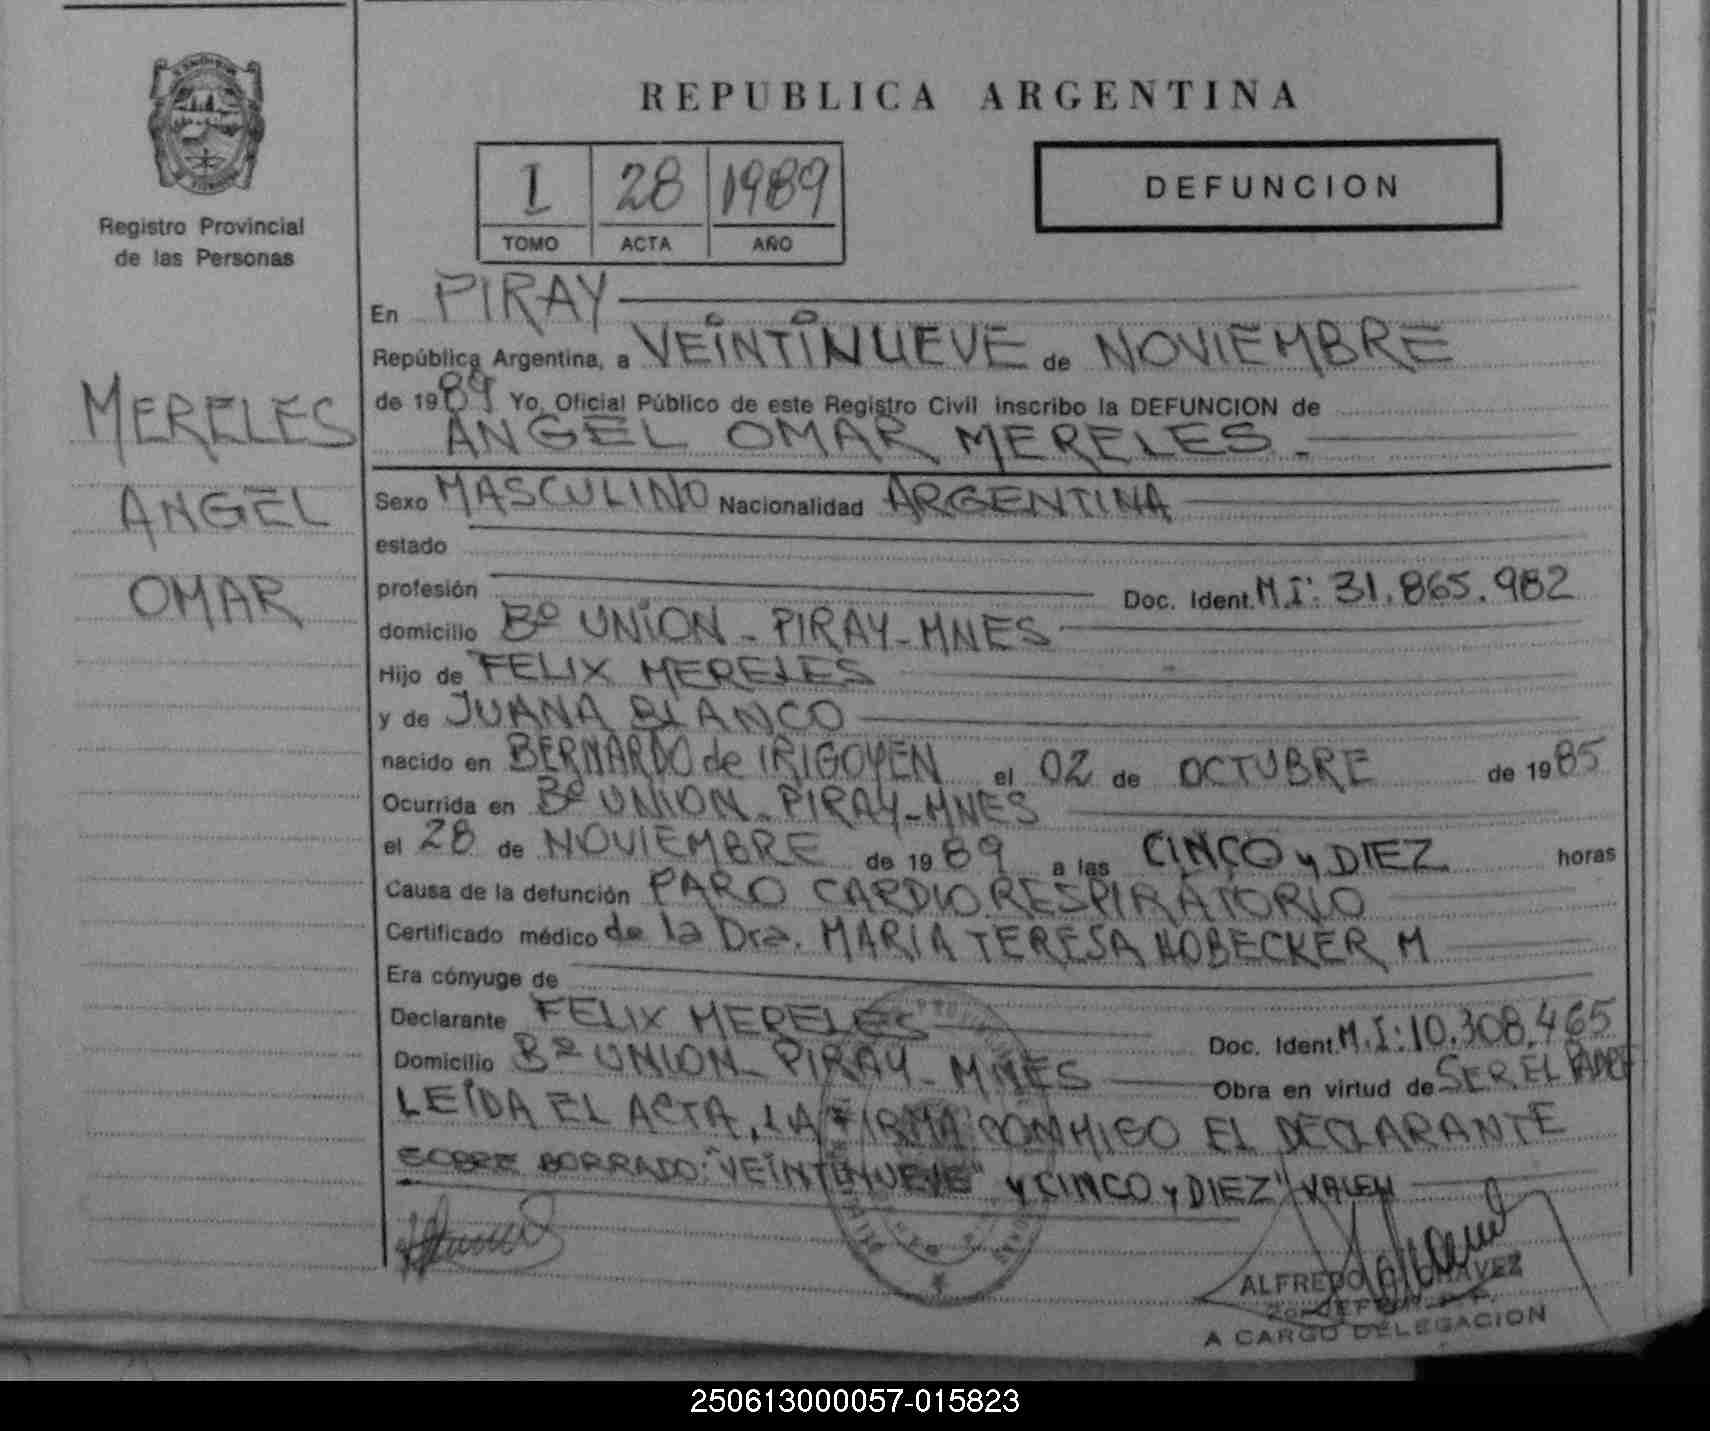 REPUBLICA ARGENTINA
I 28 1989
TOMO ACTA AÑO
DEFUNCION
Registro Provincial
de las Personas
MERELES
ANGEL
OMAR
En PIRAY
República Argentina, a VEINTINUEVE de NOVIEMBRE
de 1989 Yo, Oficial Público de este Registro Civil inscribo la DEFUNCION de
ANGEL OMAR MERELES.
Sexo MASCULINO Nacionalidad ARGENTINA
estado
profesión Doc. Ident. M.I: 31.865.982
domicilio Bº UNION - PIRAY - MNES
Hijo de FELIX MERELES
y de JUANA BLANCO
nacido en BERNARDO de IRIGOYEN el 02 de OCTUBRE de 1985
Ocurrida en Bº UNION - PIRAY - MNES
el 28 de NOVIEMBRE de 1989 a las CINCO y DIEZ horas
Causa de la defunción PARO CARDIO RESPIRATORIO
Certificado médico de la Dra. MARIA TERESA HOBECKER M
Era cónyuge de
Declarante FELIX MERELES Doc. Ident. M.I: 10.308.465
Domicilio Bº UNION - PIRAY - MNES Obra en virtud de SER EL PADRE
LEIDA EL ACTA, LA FIRMA CONMIGO EL DECLARANTE
SOBRE BORRADO: "VEINTINUEVE" y CINCO y DIEZ" VALEN
ALFREDO CHAVEZ
A CARGO DELEGACION
250613000057-015823